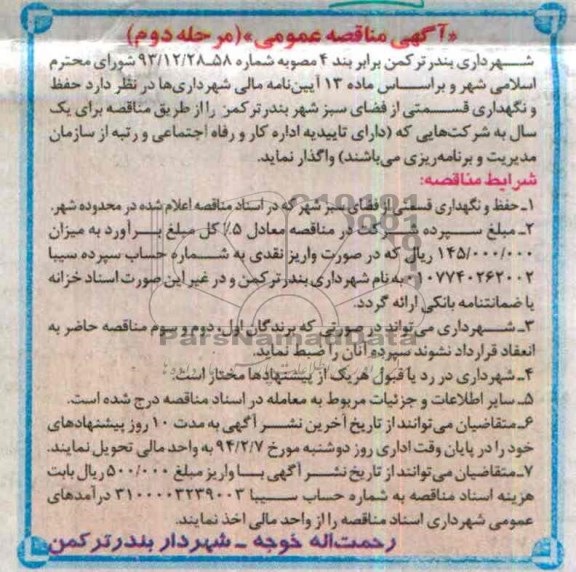 «آگهی مناقصه عمومی»(مرحله دوم)
شهرداری بندرترکمن برابر بند ۴ مصوبه شماره ۵۸ـ۹۳/۱۲/۲۸ شورای محترم
اسلامی شهر و براساس ماده ۱۳ آیین‌نامه مالی شهرداری‌ها در نظر دارد حفظ
و نگهداری قسمتی از فضای سبز شهر بندرترکمن را از طریق مناقصه برای یک
سال به شرکت‌هایی که (دارای تاییدیه اداره کار و رفاه اجتماعی و رتبه از سازمان
مدیریت و برنامه‌ریزی می‌باشند) واگذار نماید.
شرایط مناقصه:
۱ـ حفظ و نگهداری قسمتی از فضای سبز شهر که در اسناد مناقصه اعلام شده در محدوده شهر.
۲ـ مبلغ سپرده شرکت در مناقصه معادل ۵٪ کل مبلغ برآورد به میزان
۱۴۵/۰۰۰/۰۰۰ ریال که در صورت واریز نقدی به شماره حساب سپرده سیبا
۰۱۰۷۷۴۰۲۶۲۰۰۲ به نام شهرداری بندرترکمن و در غیر این صورت اسناد خزانه
یا ضمانتنامه بانکی ارائه گردد.
۳ـ شهرداری می‌تواند در صورتی که برندگان اول، دوم و سوم مناقصه حاضر به
انعقاد قرارداد نشوند سپرده آنان را ضبط نماید.
ParsNamadData
۴ـ شهرداری در رد یا قبول هریک از پیشنهادها مختار است.
۵ـ سایر اطلاعات و جزئیات مربوط به معامله در اسناد مناقصه درج شده است.
۶ـ متقاضیان می‌توانند از تاریخ آخرین نشر آگهی به مدت ۱۰ روز پیشنهادهای
خود را در پایان وقت اداری روز دوشنبه مورخ ۹۴/۲/۷ به واحد مالی تحویل نمایند.
۷ـ متقاضیان می‌توانند از تاریخ نشر آگهی با واریز مبلغ ۵۰۰/۰۰۰ ریال بابت
هزینه اسناد مناقصه به شماره حساب سیبا ۳۱۰۰۰۰۳۲۳۹۰۰۳ درآمدهای
عمومی شهرداری اسناد مناقصه را از واحد مالی اخذ نمایند.
رحمت‌اله خوجه ـ شهردار بندرترکمن